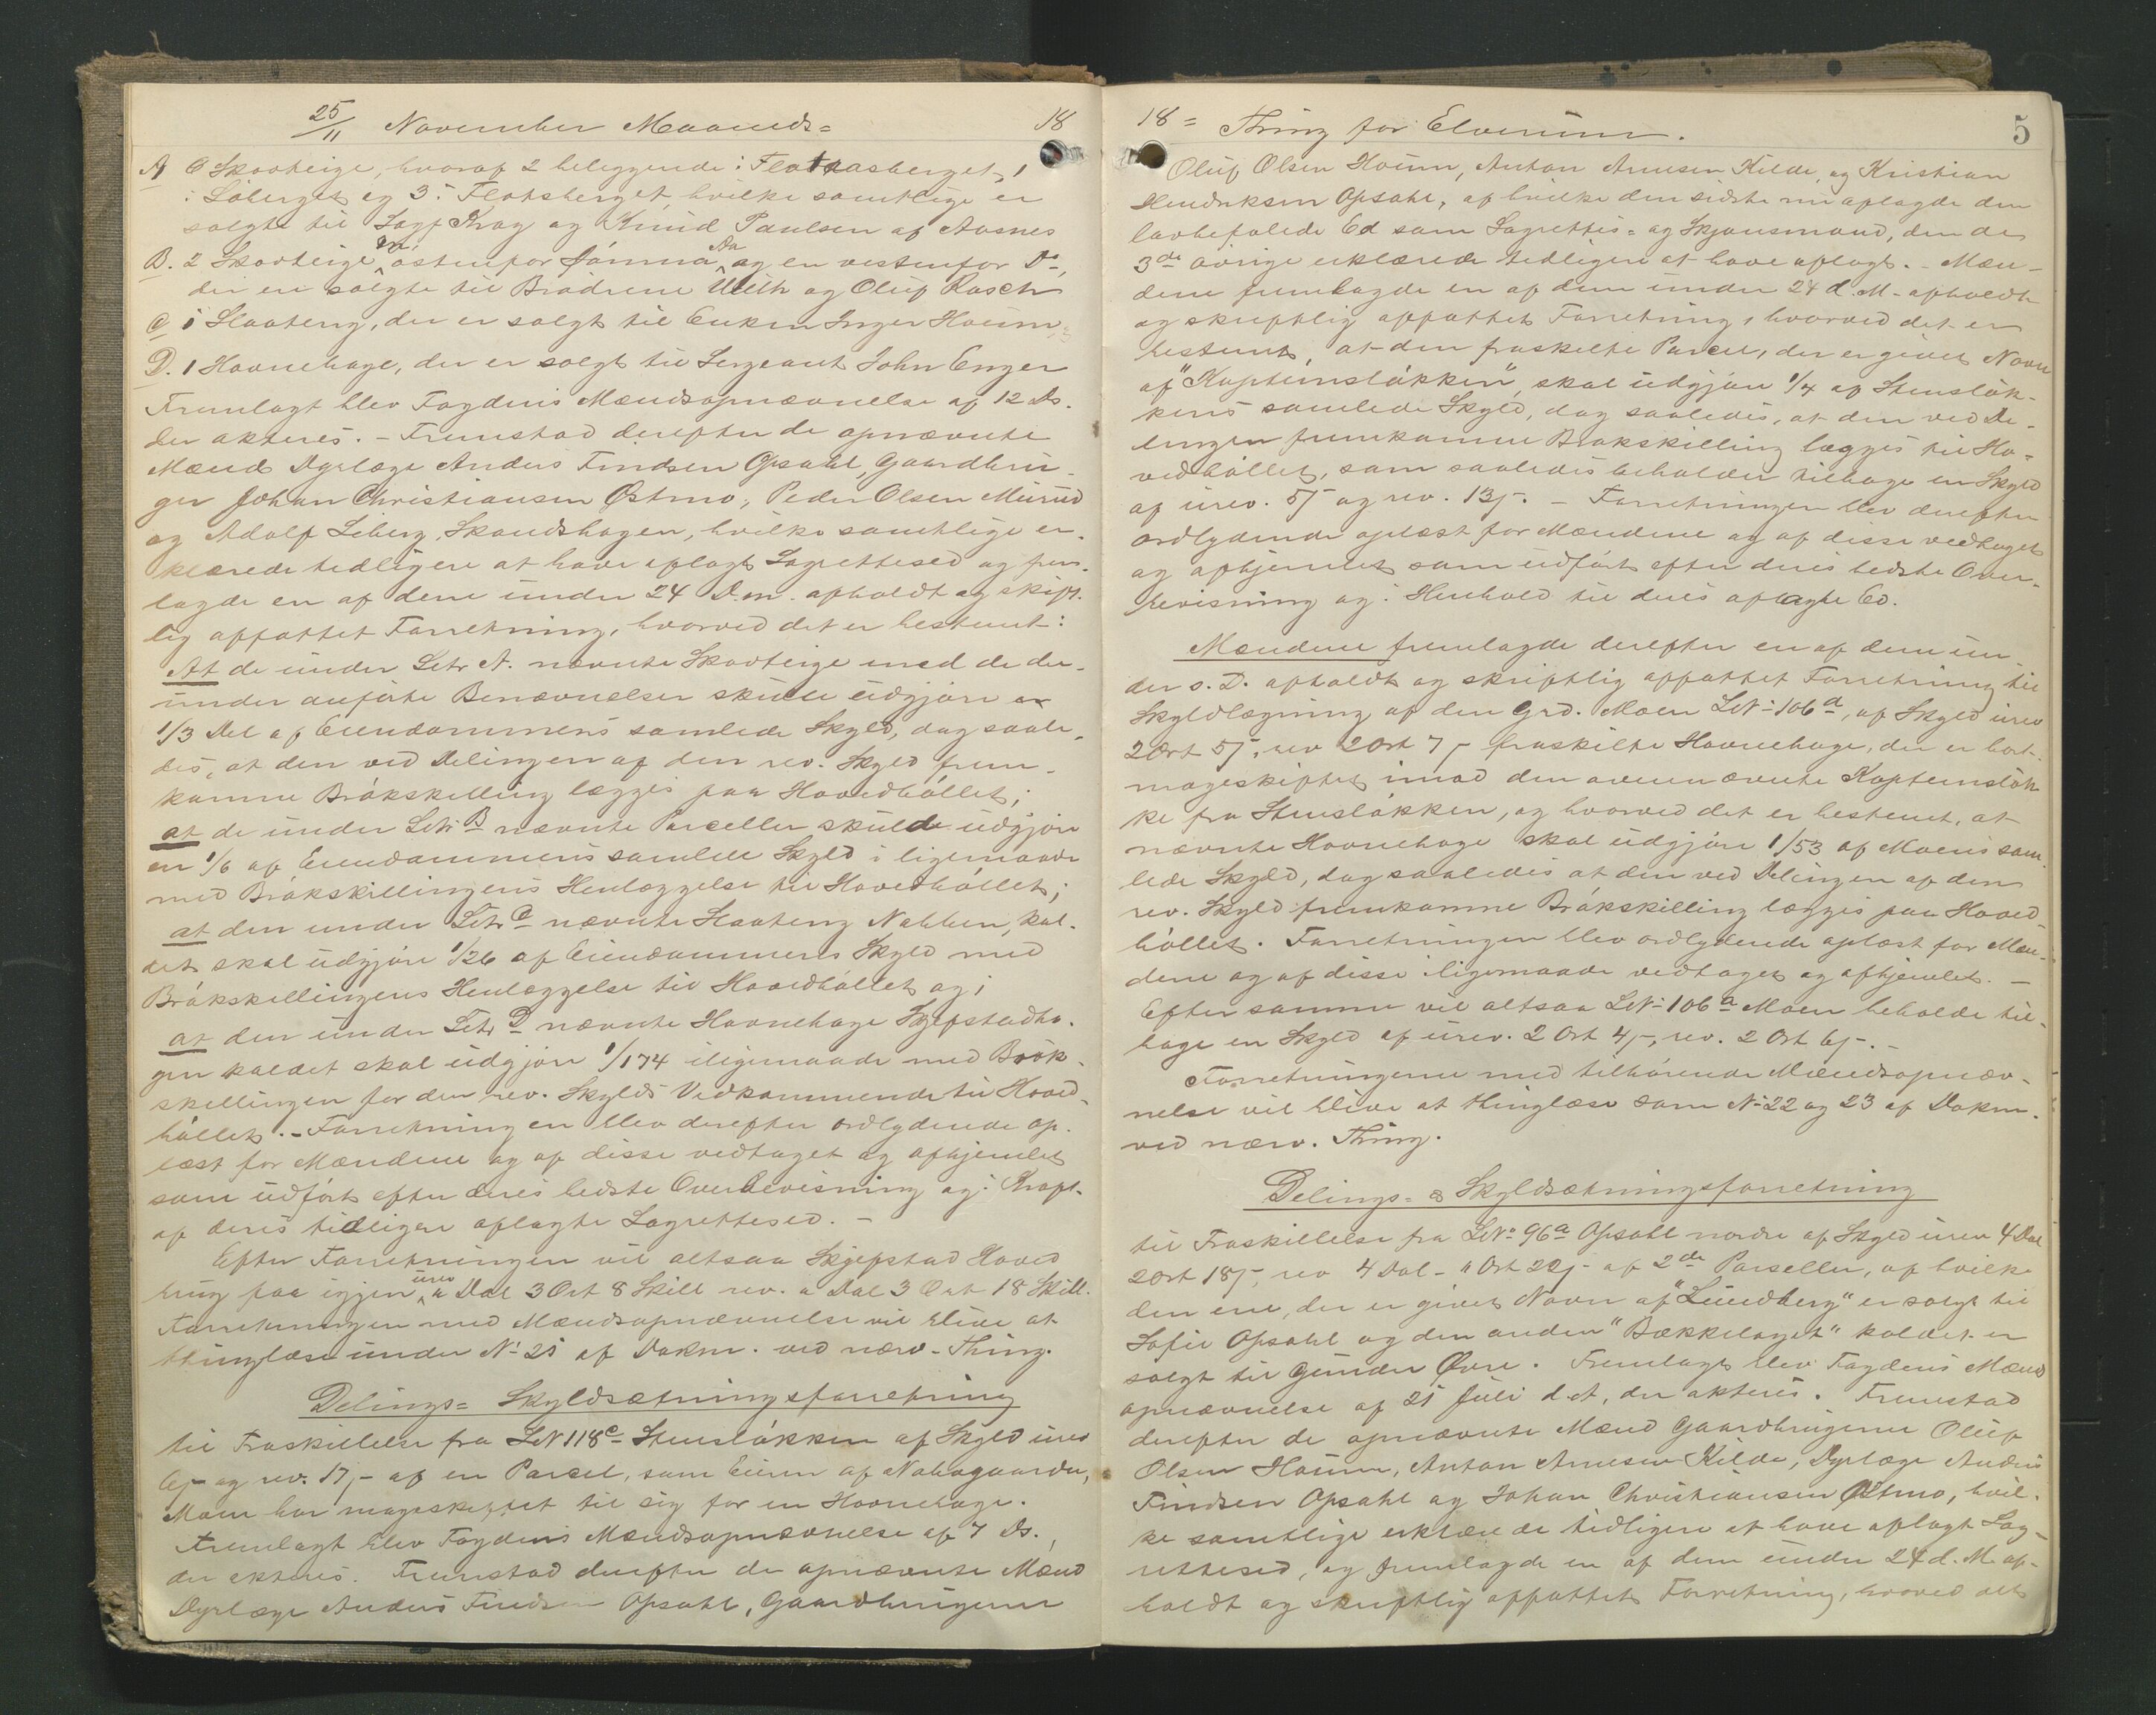 25/11 November Maaneds= 18
A 6 Skovteige, hvoraf 2 beliggende i Flataasberget, 1
i Löberget og 3 i Flaksberget, hvilke samtlige er
solgte til Sagf Krag og Knud Paulsen af Aasnes
B. 2 Skovteige, en östenfor Jömna Aa og en vestenfor Do,
der ere solgte til Brödrene Uleth og Oluf Rasch
C 1 Slaateng, der er solgt til Enken Inger Houm
D. 1 Havnehage, der er solgt til Sergeant John Enger
Fremlagt blev Fogdens Mændsopnævnelse af 12 Ds.
der akteres. - Fremstod derefter de opnævnte
Mænd Dyrlæge Anders Findsen Opsahl, Gaardbru-
ger Johan Christiansen Østmo, Peder Olsen Murud
og Adolf Leberg, Skaudshagen, hvilke samtlige er-
klærede tidligere at have aflagt Lagrettesed og frem-
lagde en af dem under 24 D.m. afholdt og skift-
lig affattet Forretning, hvorved det er bestemt:
At de under Litr A. nævnte Skovteige med de der-
under anförte Benævnelser skulle udgjöre en
1/3 Del af Eiendommens samlede Skyld, dog saale-
des, at den ved Delingen af den rev. Skyld frem-
komne Brökskilling lægges paa Hovedböllet;
at de under Litr B nævnte Parceller skulde udgjöre
en 1/6 af Eiendommens samlede Skyld i ligemaade
med Brökskillingens Henlæggelse til Hovedböllet;
at den under Litr C nævnte Slaateng Nabben, kal-
det skal udgjöre 1/26 af Eiendommens Skyld med
Brökskillingens Henlæggelse til Hovedböllet og;
at den under Litr D nævnte Havnehage Skjefstadha-
gen kaldet skal udgjöre 1/174 i ligemaade med Brök-
skillingen for den rev. Skylds Vedkommende til Hoved-
böllet. - Forretningen blev derefter ordlydende op-
læst for Mændene og af disse vedtaget og afhjemlet
som udfört efter deres bedste Overbevisning og i Kraft
af deres tidligere aflagte Lagrettesed. -
Efter Forretningen vil altsaa Skjefstad Hoved
brug faa igjen urev " Dal 3 Ort 8 Skill rev. " Dal 3 Ort 18 Skill.
Forretningen med Mændsopnævnelse vil blive at
thinglæse under No 21 af Dokm. ved nærv. Thing.
Delings= Skyldsætningsforretning
til Fraskillelse fra LN 118c Stenslökken af Skyld urev
6ƒ- og rev. 17ƒ- af en Parcel, som Eieren af Nabogaarden,
Moen har mageskiftet til sig for en Havnehage.
Fremlagt blev Fogdens Mændsopnævnelse af 7 Ds.,
der akteres. Fremstod derefter de opnævnte Mænd
Dyrlæge Anders Findsen Opsahl, Gaardbrugerne
18= Thing for Elverum. 5
Oluf Olsen Houm, Anton Arnesen Kilde, og Kristian
Hendriksen Opsahl, af hvilke den sidste nu aflagde den
lovbefalede Ed som Lagrettes= og Skjönsmand, den de
3de övrige erklærede tidligere at have aflagt. - Mæn-
dene fremlagde en af dem under 24 d.M. afholdt
og skriftlig affattet Forretning, hvorved det er
bestemt, at den fraskilte Parcel, der er givet Navn
af "Kapteinslökken", skal udgjöre 1/4 af Stenslök-
kens samlede Skyld, dog saaledes, at den ved De-
lingen fremkomne Brökskilling lægges til Ho-
vedböllet, som saaledes beholder tilbage en Skyld
af urev. 5ƒ og rev. 13ƒ. - Forretningen blev derefter
ordlydende oplæst for Mændene og af disse vedtaget
og afhjemlet som udfört efter deres bedste Over-
bevisning og i Henhold til deres aflagte Ed.
Mændene fremlagde derefter en af dem un-
der s. D. afholdt og skriftlig affattet Forretning til
Skyldlægning af den Grd. Moen LN 106a, af Skyld urev
2 Ort 5ƒ, rev 2 Ort 7ƒ- fraskilte Havnehage, der er bort-
mageskiftet imod den ovennævnte Kapteinslök-
ke fra Stenslökken, og hvorved det er bestemt, at
nævnte Havnehage skal udgjöre 1/53 af Moens sam-
lede Skyld, dog saaledes at den ved Delingen af den
rev. Skyld fremkomne Brökskilling lægges paa Hoved
böllet. Forretningen blev ordlydende oplæst for Mæn-
dene og af disse i ligemaade vedtaget og afhjemlet. -
Efter samme vil altsaa LN 106a Moen beholde til-
bage en Skyld af urev. 2 Ort 4ƒ-, rev. 2 Ort 6ƒ-. -
Forretningerne med tilhörende Mændsopnæv-
nelse vil blive at thinglæse som No 22 og 23 af Dokm.
ved nærv. Thing.
Delings= & Skyldsætningsforretning
til Fraskillelse fra LNo 96a Opsahl nordre af Skyld urev 4 Dal
2 Ort 18ƒ-, rev 4 Dal - " Ort 22ƒ- af 2de Parseller, af hvilke
den ene, der er givet Navn af "Lundberg" er solgt til
Sofie Opsahl og den anden "Bækkelaget" kaldet er
solgt til Gunder Øvre. Fremlagt blev Fogdens Mænd
opnævnelse af 21 Juli d.A, der akteres. Fremstod
derefter de opnævnte Mænd Gaardbrugerne Oluf
Olsen Houm, Anton Arnesen Kilde, Dyrlæge Anders
Findsen Opsahl og Johan Christiansen Østmo, hvil-
ke samtlige erklærede tidligere at have aflagt Lag-
rettesed, og fremlagde en af dem under 24 d.M. af-
holdt og skriftlig affattet Forretning, hvorved det